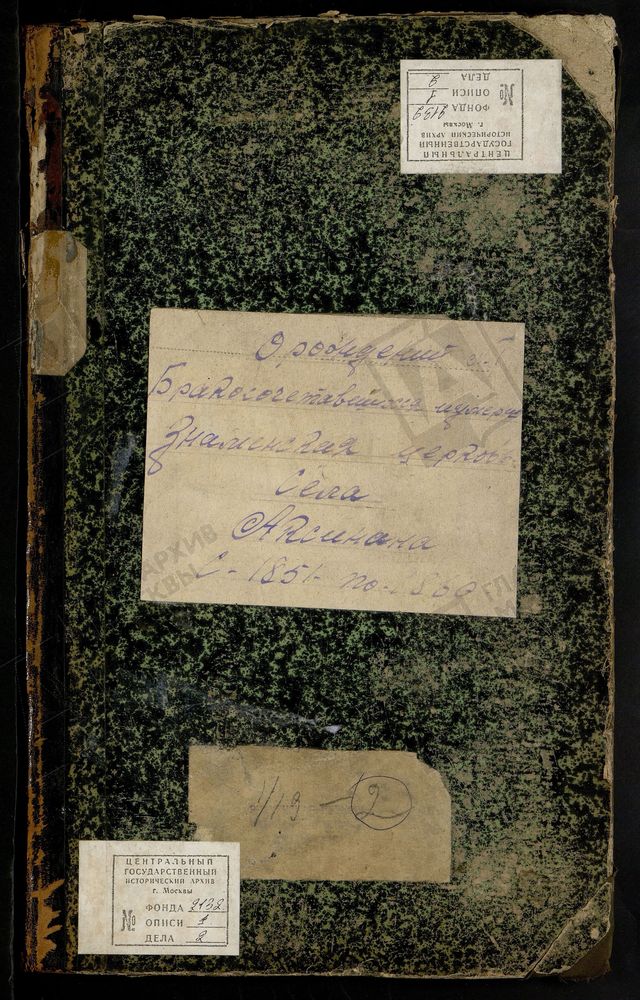 ЦЕНТРАЛЬНЫЙ
ГОСУДАРСТВЕННЫЙ
ИСТОРИЧЕСКИЙ АРХИВ
г. Москвы
№
ФОНДА 2132
ОПИСИ 1
ДЕЛА 2
О рождений
Бракосочетавшихся
Знаменская церковь
Села
Аксинина
С - 1851 - по - 1869
2
ЦЕНТРАЛЬНЫЙ
ГОСУДАРСТВЕННЫЙ
ИСТОРИЧЕСКИЙ АРХИВ
г. Москвы
№
ФОНДА 2132
ОПИСИ 1
ДЕЛА 2